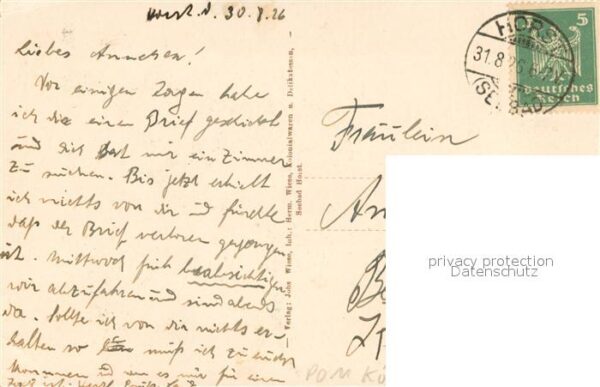 Horst, d. 30.8.26
Liebes Annchen!
Vor einigen Tagen habe
ich dir einen Brief geschickt
und dich bat mir ein Zimmer
zu suchen. Bis jetzt erhielt
ich nichts von dir und fürchte
daß der Brief verloren gegangen
ist. Mittwoch früh beabsichtigen
wir abzufahren und sind abends
da. Sollte ich von dir nichts er-
halten so muß ich zu euch
kommen und wenn es nur für einen
Verlag: Johs Wiese, Inh.: Herm. Wiese, Kolonialwaren u. Delikatessen,
Seebad Horst.
HORST
31.8.26
(SEEBAD)
5
Deutsches
Reich
Fräulein
privacy protection
Datenschutz
POM